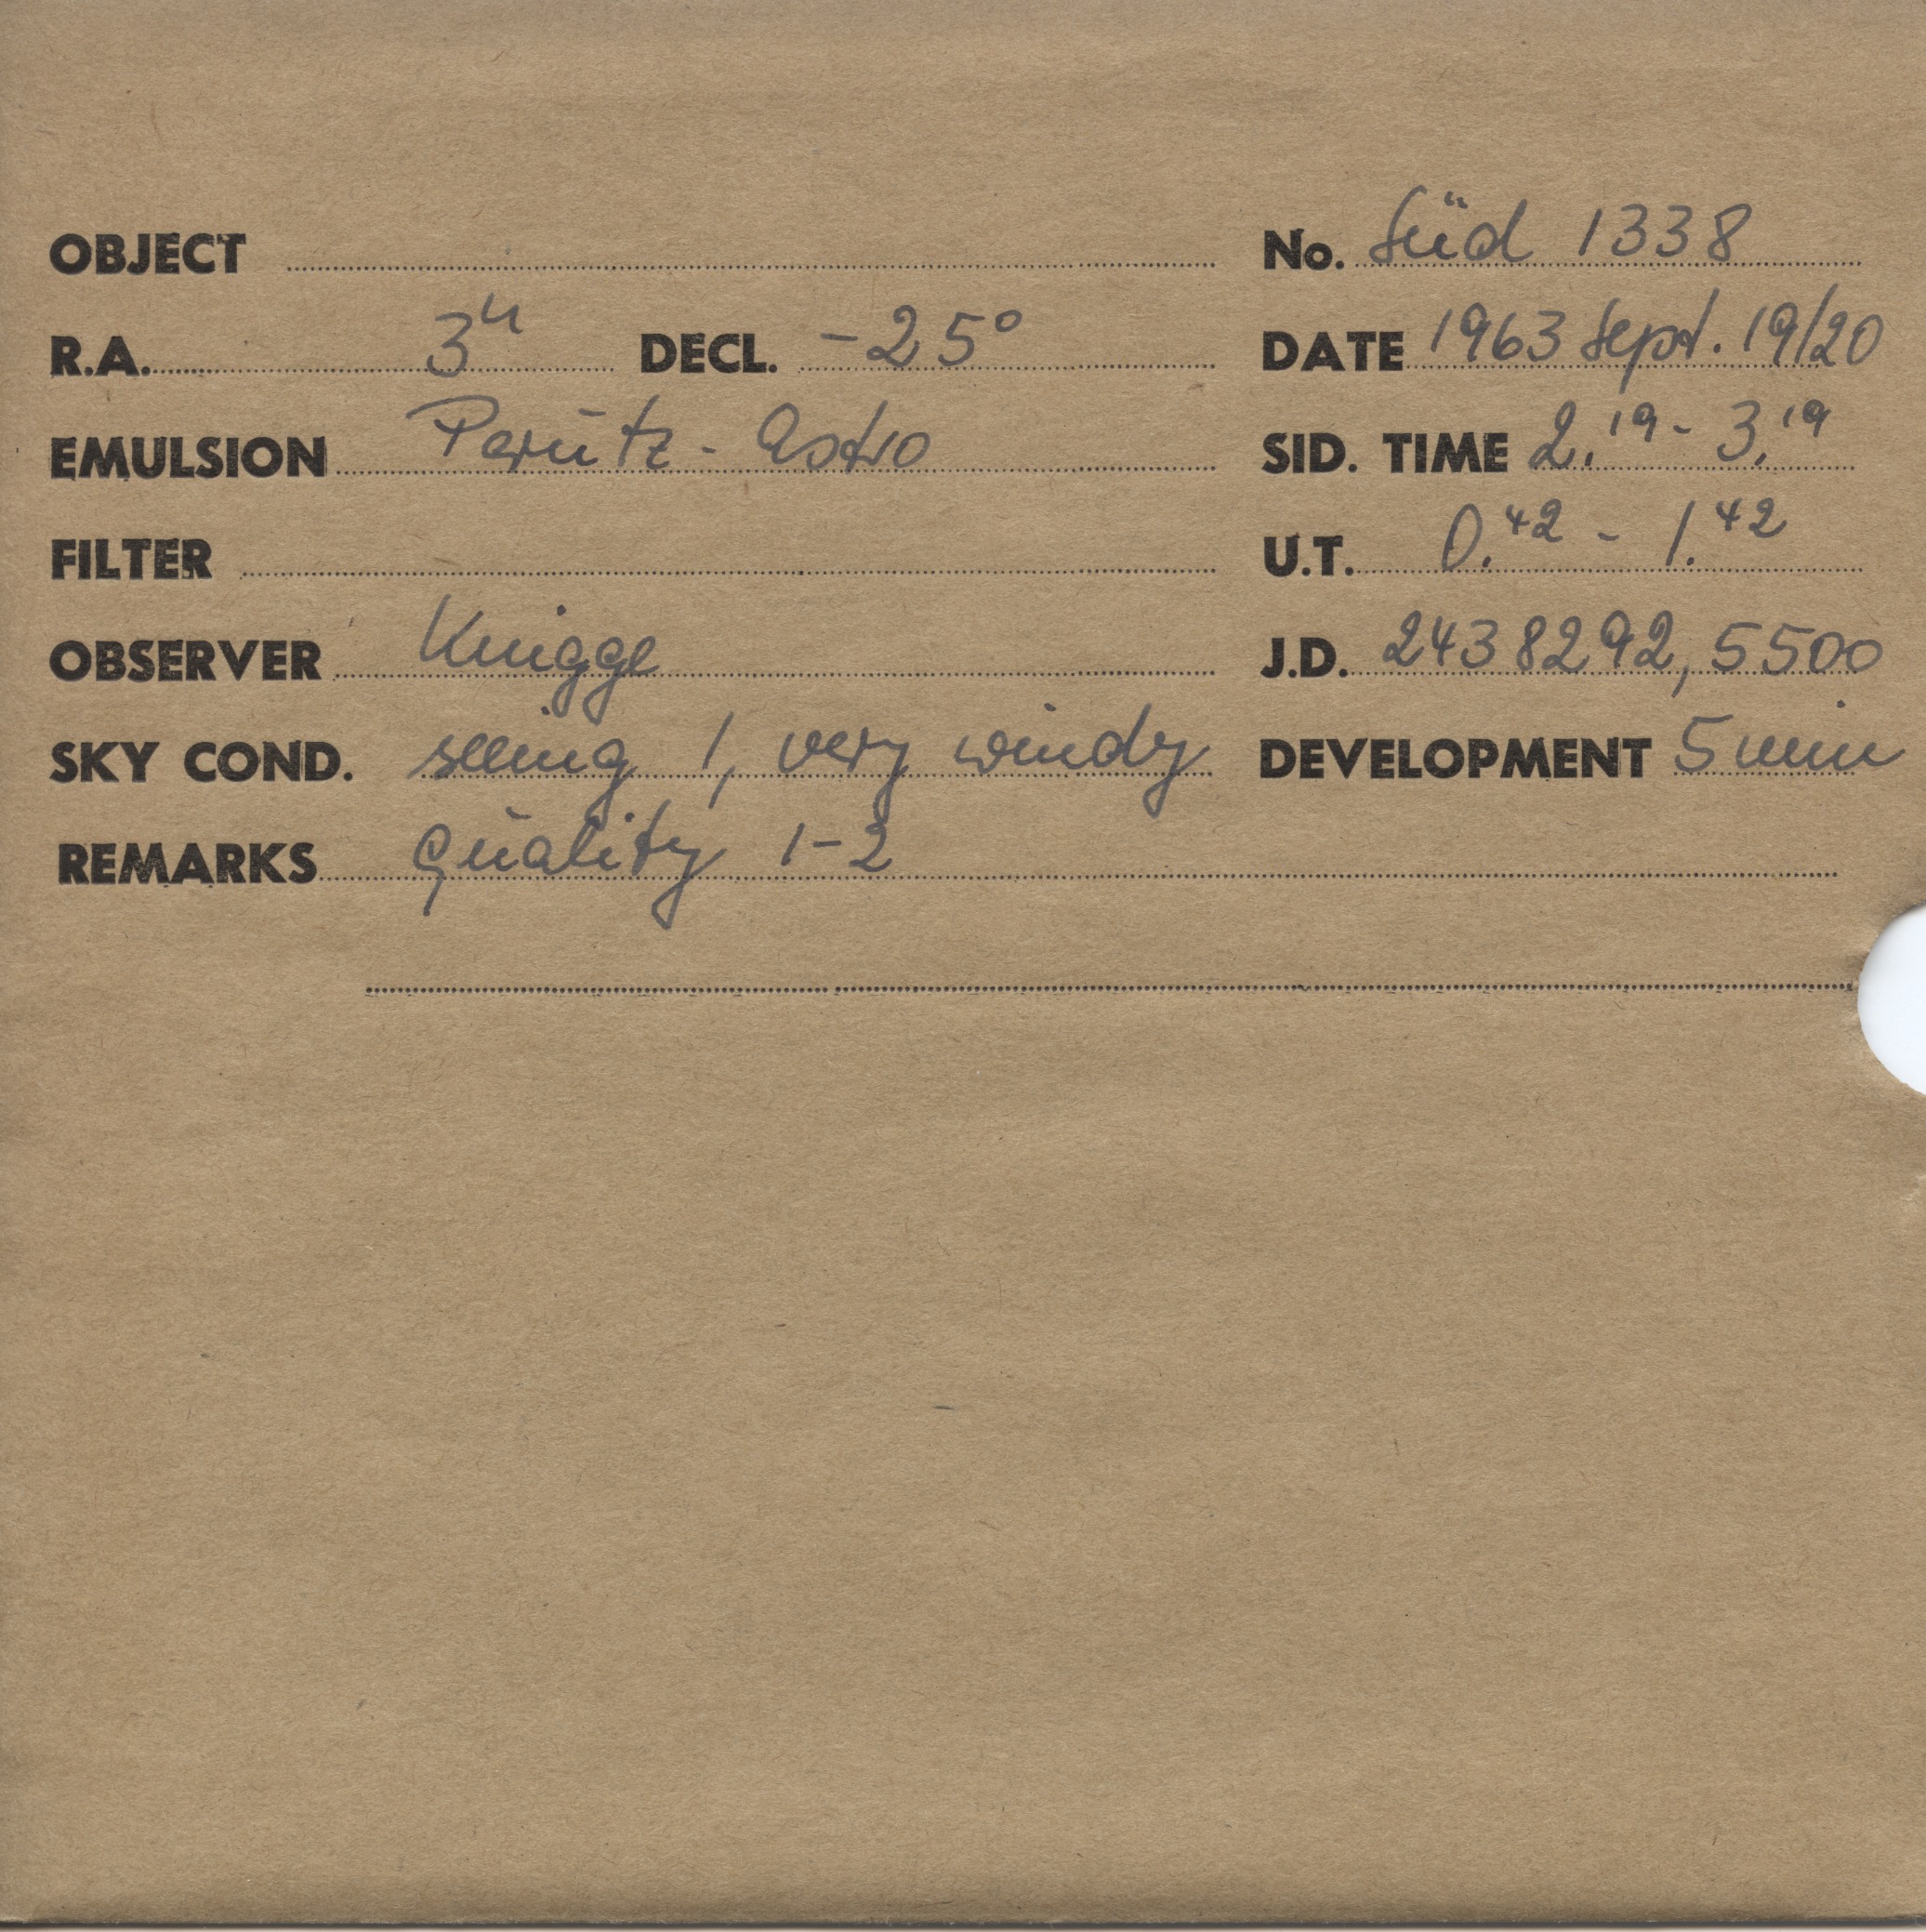 OBJECT No. Süd 1338
R.A. 3h DECL. -25° DATE 1963 Sept. 19/20
EMULSION Perutz-Astro SID. TIME 2.19 - 3.19
FILTER U.T. 0.42 - 1.42
OBSERVER Knigge J.D. 2438292,5500
SKY COND. seeing 1, very windy DEVELOPMENT 5 min
REMARKS quality 1-2